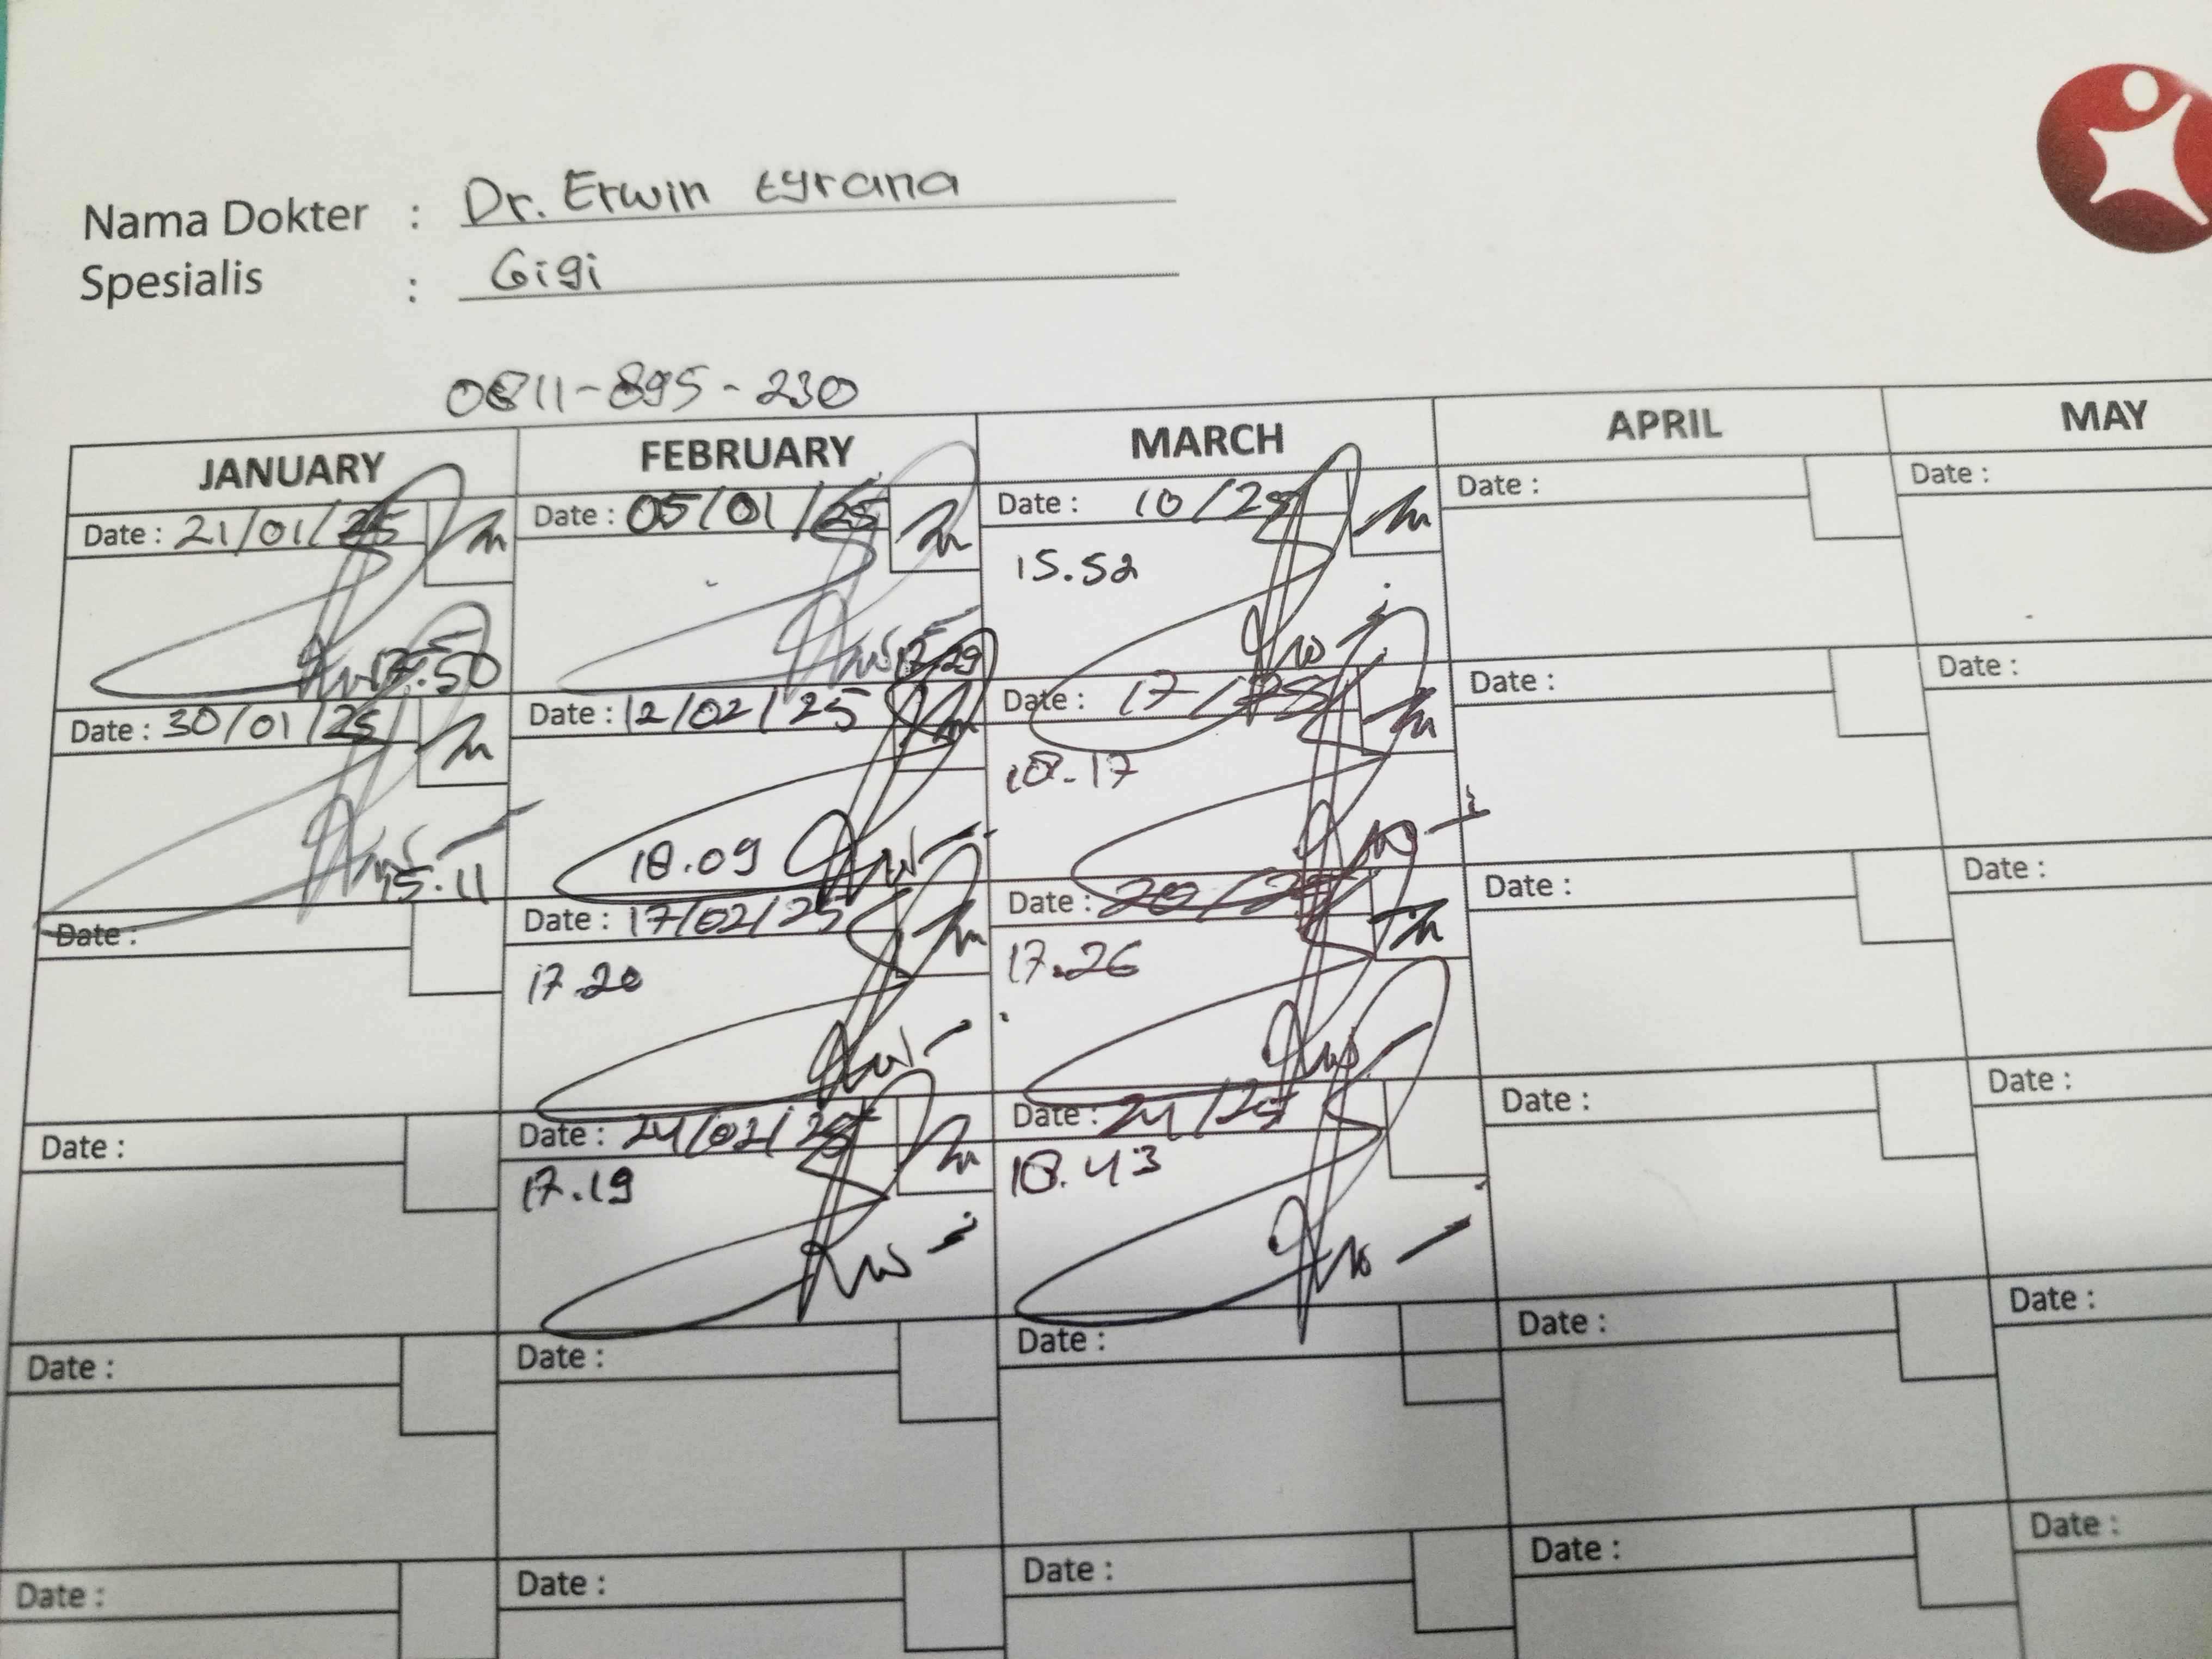 Nama Dokter : Dr. Erwin tyrana
Spesialis : Gigi
0811-895-230
JANUARY FEBRUARY MARCH APRIL MAY
Date : 21/01/25 Date : 05/01/25 Date : 10/25 Date : Date :
15.52
17.50 17.29
Date : 30/01/25 Date : 12/02/25 Date : 17/25 Date : Date :
18.17
15.11 18.09
Date : Date : 17/02/25 Date : 20/25 Date : Date :
17.20 17.26
Date : Date : 24/02/25 Date : 24/25 Date : Date :
17.19 18.43
Date : Date : Date : Date : Date :
Date : Date : Date : Date : Date :